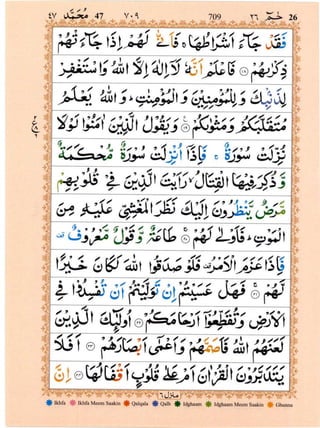 ٤٧ مُحَمَّد 47 ٧٠٩ 709 ٢٦ حٰمٓ 26
فَقَدْ جَآءَ اَشْرَاطُهَا ۚ فَاَنّٰى لَهُمْ اِذَا جَآءَتْهُمْ
ذِكْرٰىهُمْ ﴿۱۸﴾ فَاعْلَمْ اَنَّهٗ لَاۤ اِلٰهَ اِلَّا اللّٰهُ وَاسْتَغْفِرْ
لِذَنْۢبِكَ وَلِلْمُؤْمِنِيْنَ وَالْمُؤْمِنٰتِ ؕ وَاللّٰهُ يَعْلَمُ
مُتَقَلَّبَكُمْ وَمَثْوٰىكُمْ ﴿۱۹﴾ وَيَقُوْلُ الَّذِيْنَ اٰمَنُوْا لَوْلَا
نُزِّلَتْ سُوْرَةٌ ۚ فَاِذَاۤ اُنْزِلَتْ سُوْرَةٌ مُّحْكَمَةٌ
وَّذُكِرَ فِيْهَا الْقِتَالُ ۙ رَاَيْتَ الَّذِيْنَ فِيْ قُلُوْبِهِمْ
مَّرَضٌ يَّنْظُرُوْنَ اِلَيْكَ نَظَرَ الْمَغْشِيِّ عَلَيْهِ مِنَ
الْمَوْتِ ؕ فَاَوْلٰى لَهُمْ ﴿۲۰﴾ طَاعَةٌ وَّقَوْلٌ مَّعْرُوْفٌ
فَاِذَا عَزَمَ الْاَمْرُ فَلَوْ صَدَقُوا اللّٰهَ لَكَانَ خَيْرًا
لَّهُمْ ﴿۲۱﴾ فَهَلْ عَسَيْتُمْ اِنْ تَوَلَّيْتُمْ اَنْ تُفْسِدُوْا فِي
الْاَرْضِ وَتُقَطِّعُوْۤا اَرْحَامَكُمْ ﴿۲۲﴾ اُولٰٓئِكَ الَّذِيْنَ
لَعَنَهُمُ اللّٰهُ فَاَصَمَّهُمْ وَاَعْمٰۤى اَبْصَارَهُمْ ﴿۲۳﴾ اَفَلَا
يَتَدَبَّرُوْنَ الْقُرْاٰنَ اَمْ عَلٰى قُلُوْبٍ اَقْفَالُهَا ﴿۲۴﴾ اِنَّ
منزل ٦
Ikhfa Ikhfa Meem Saakin Qalqala Qalb Idghaam Idghaam Meem Saakin Ghunna